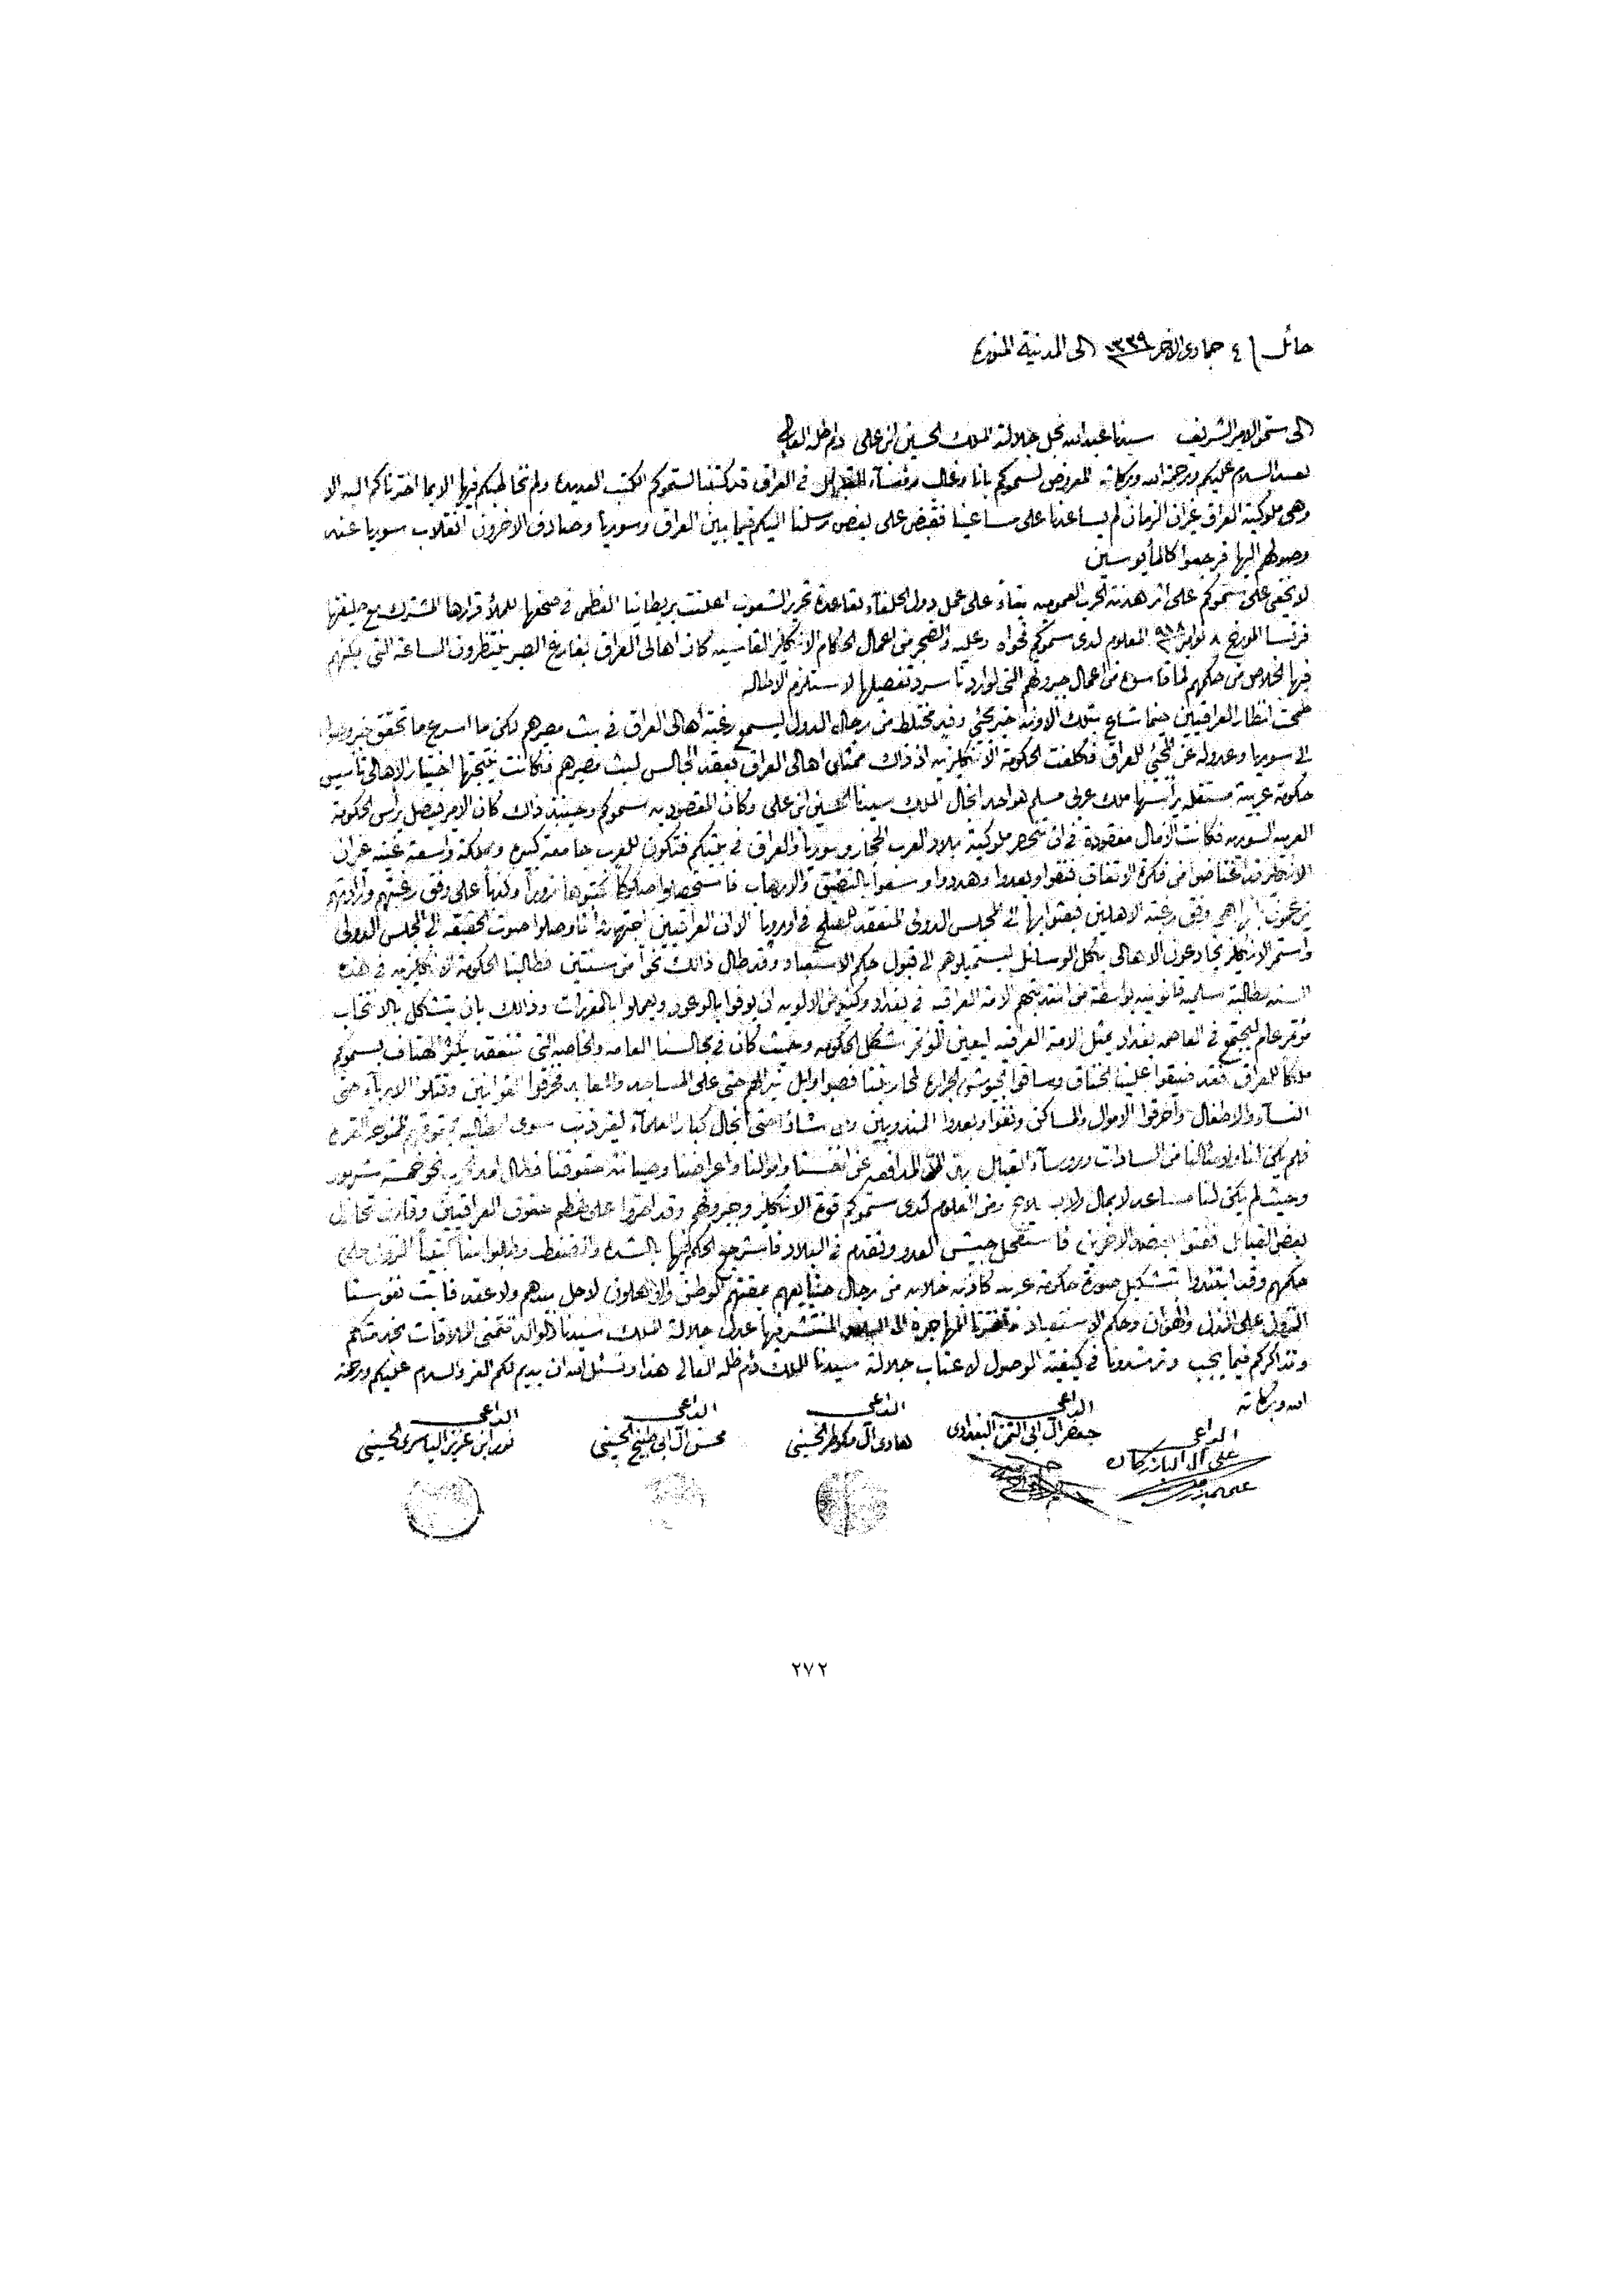 حائل / ٤ جمادى الاخر ١٣٣٩ الى المدينة المنورة
الى سمو الامير الشريف سيدنا عبدالله نجل جلالة الملك الحسين ابن علي دام ظله العالي
بعد السلام عليكم ورحمة الله وبركاته المعروض لسموكم باننا رجال ورؤساء القبائل في العراق قد كتبنا لسموكم الكتب العديدة ولم نخاطبكم فيها الا بما اخترناكم اليه الا
وهي ملوكية العراق غير ان الزمان لم يساعدنا على مساعينا فقبض على بعض رسلنا اليكم فيما بين العراق وسوريا وصادف الاخرون انقلاب سوريا عند
وصولهم اليها فرجعوا كالمأيوسين
لا يخفى على سموكم على اثر هدنة الحرب العمومية بناء على عمل دول الحلفاء بقاعدة تحرير الشعوب اعلنت بريطانيا العظمى في صحفها للملأ قرارها المشترك مع حليفتها
فرنسا المؤرخ ٨ نوفمبر ٩١٨ المعلوم لدى سموكم فحواه وعليه والضجر من اعمال الحكام الانكليز القاسية كان اهالي العراق بفارغ الصبر ينتظرون الساعة التي يمكنهم
فيها الخلاص من حكمهم لما قاسوه من اعمال جبروتهم التي لو اردنا سرد تفصيلها لاستلزم الاطالة
طمحت انظار العراقيين حينما شاع بتلك الاونة خبر مجئ وفد مختلط من رجال الدول ليسمع رغبة أهالي العراق في بث مصيرهم لكن ما اسرع ما تحقق
الى سوريا وعدوله عن المجئ للعراق فكلفت الحكومة الانكليزية اذ ذاك ممثلي اهالي العراق بعقد المجالس لبث مصيرهم فكانت نتيجتها اختيار الاهالي تأسيس
حكومة عربية مستقلة يرأسها ملك عربي مسلم هو احد انجال الملك سيدنا الحسين ابن علي وكان المقصود به سموكم وحينئذ ذاك كان الامير فيصل رأس الحكومة
العربية السورية فكانت الآمال معقودة في ان تنحصر ملوكية بلاد العرب الحجاز وسوريا والعراق في بيتكم فتكون للعرب جامعة كبيرة ومملكة واسعة غير ان
الانكليز قد من فكرة الاتفاق فنفوا وبعدوا وهددوا وسعوا بالتضييق والارهاب فاستحصلوا صكوكا كتبوها تزويراً وكذباً على وفق رغبتهم وارادتهم
يزعمون انها هي وفق رغبة الاهلين فبعثوا بها الى المجلس الدولي المنعقد للصلح في اوروبا الا ان العراقيين اجتهدوا اوصلوا صوت الحقيقة الى المجلس الدولي
واستمر الانكليز يخادعون الاهالي بكل الوسائل ليستميلوهم الى قبول حكم الاستعباد وقد طال ذلك نحواً من سنتين فطالبنا الحكومة الانكليزية في هذه
السنة مطالبة سلمية قانونية بواسطة من انتدبتهم الامة العراقية في بغداد وكثير من الالوية ان يوفوا بالوعود ويعملوا بالمقررات وذلك بان يتشكل بالانتخاب
مؤتمر عام ليجتمع في العاصمة بغداد يمثل الامة العراقية ليعين المؤتمر شكل الحكومة وحيث كان في مجالسنا العامة والخاصة التي تنعقد يكثر الهتاف بسموكم
ملكا للعراق فقد ضيقوا علينا الخناق وساقوا الجيوش الجرارة لمحاربتنا فصبوا وابل نيرانهم حتى على المساجد والمعابد فخرقوا القوانين وقتلوا الابرياء حتى
النساء والاطفال وأحرقوا الاموال والمساكن ونفوا وبعدوا المندوبين حتى انجال كبار العلماء لغير ذنب سوى المطالبة بحقوقهم
فلم يكن لنا ولامثالنا من السادات ورؤساء القبائل المدافعة عن انفسنا واموالنا واعراضنا وصيانة حقوقنا فطال امد الحرب نحو خمسة شهور
وحيث لم يكن لنا مساعد لا بمال ولا بسلاح ومن المعلوم لدى سموكم قوة الانكليز وجبروتهم وقد اصروا على هضم حقوق العراقيين وقارن تخاذل
بعض القبائل فاستفحل جيش العدو وتقدم في البلاد فاسترجع الحكم فيها بالشدة والضغط وطلبوا منا النزول على
حكمهم وقد ابتدأوا بتشكيل صورة حكومة عربية كاذبة خلابة من رجال يمقتهم الوطن والاهلون لا حل بيدهم ولا عقد فابت نفوسنا
النزول على الذل والهوان وحكم الاستعباد المهاجرة الى البلاد المنتشر فيها عدل جلالة الملك سيدنا الوالد نتمنى الملاقات بخدمتكم
ونذاكركم فيما يجب وترشدونا في كيفية الوصول لاعتاب جلالة سيدنا الملك دام ظله العالي هذا ونسئل الله ان يديم لكم العز والسلام عليكم ورحمة
الله وبركاته
الداعي الداعي الداعي الداعي الداعي
علي آل البازركان جعفر آل ابي التمن البغدادي هادي آل مكوطر الحسيني محسن آل ابي طبيخ الحسيني نور ابن عزيز الياسري الحسيني
٢٧٢